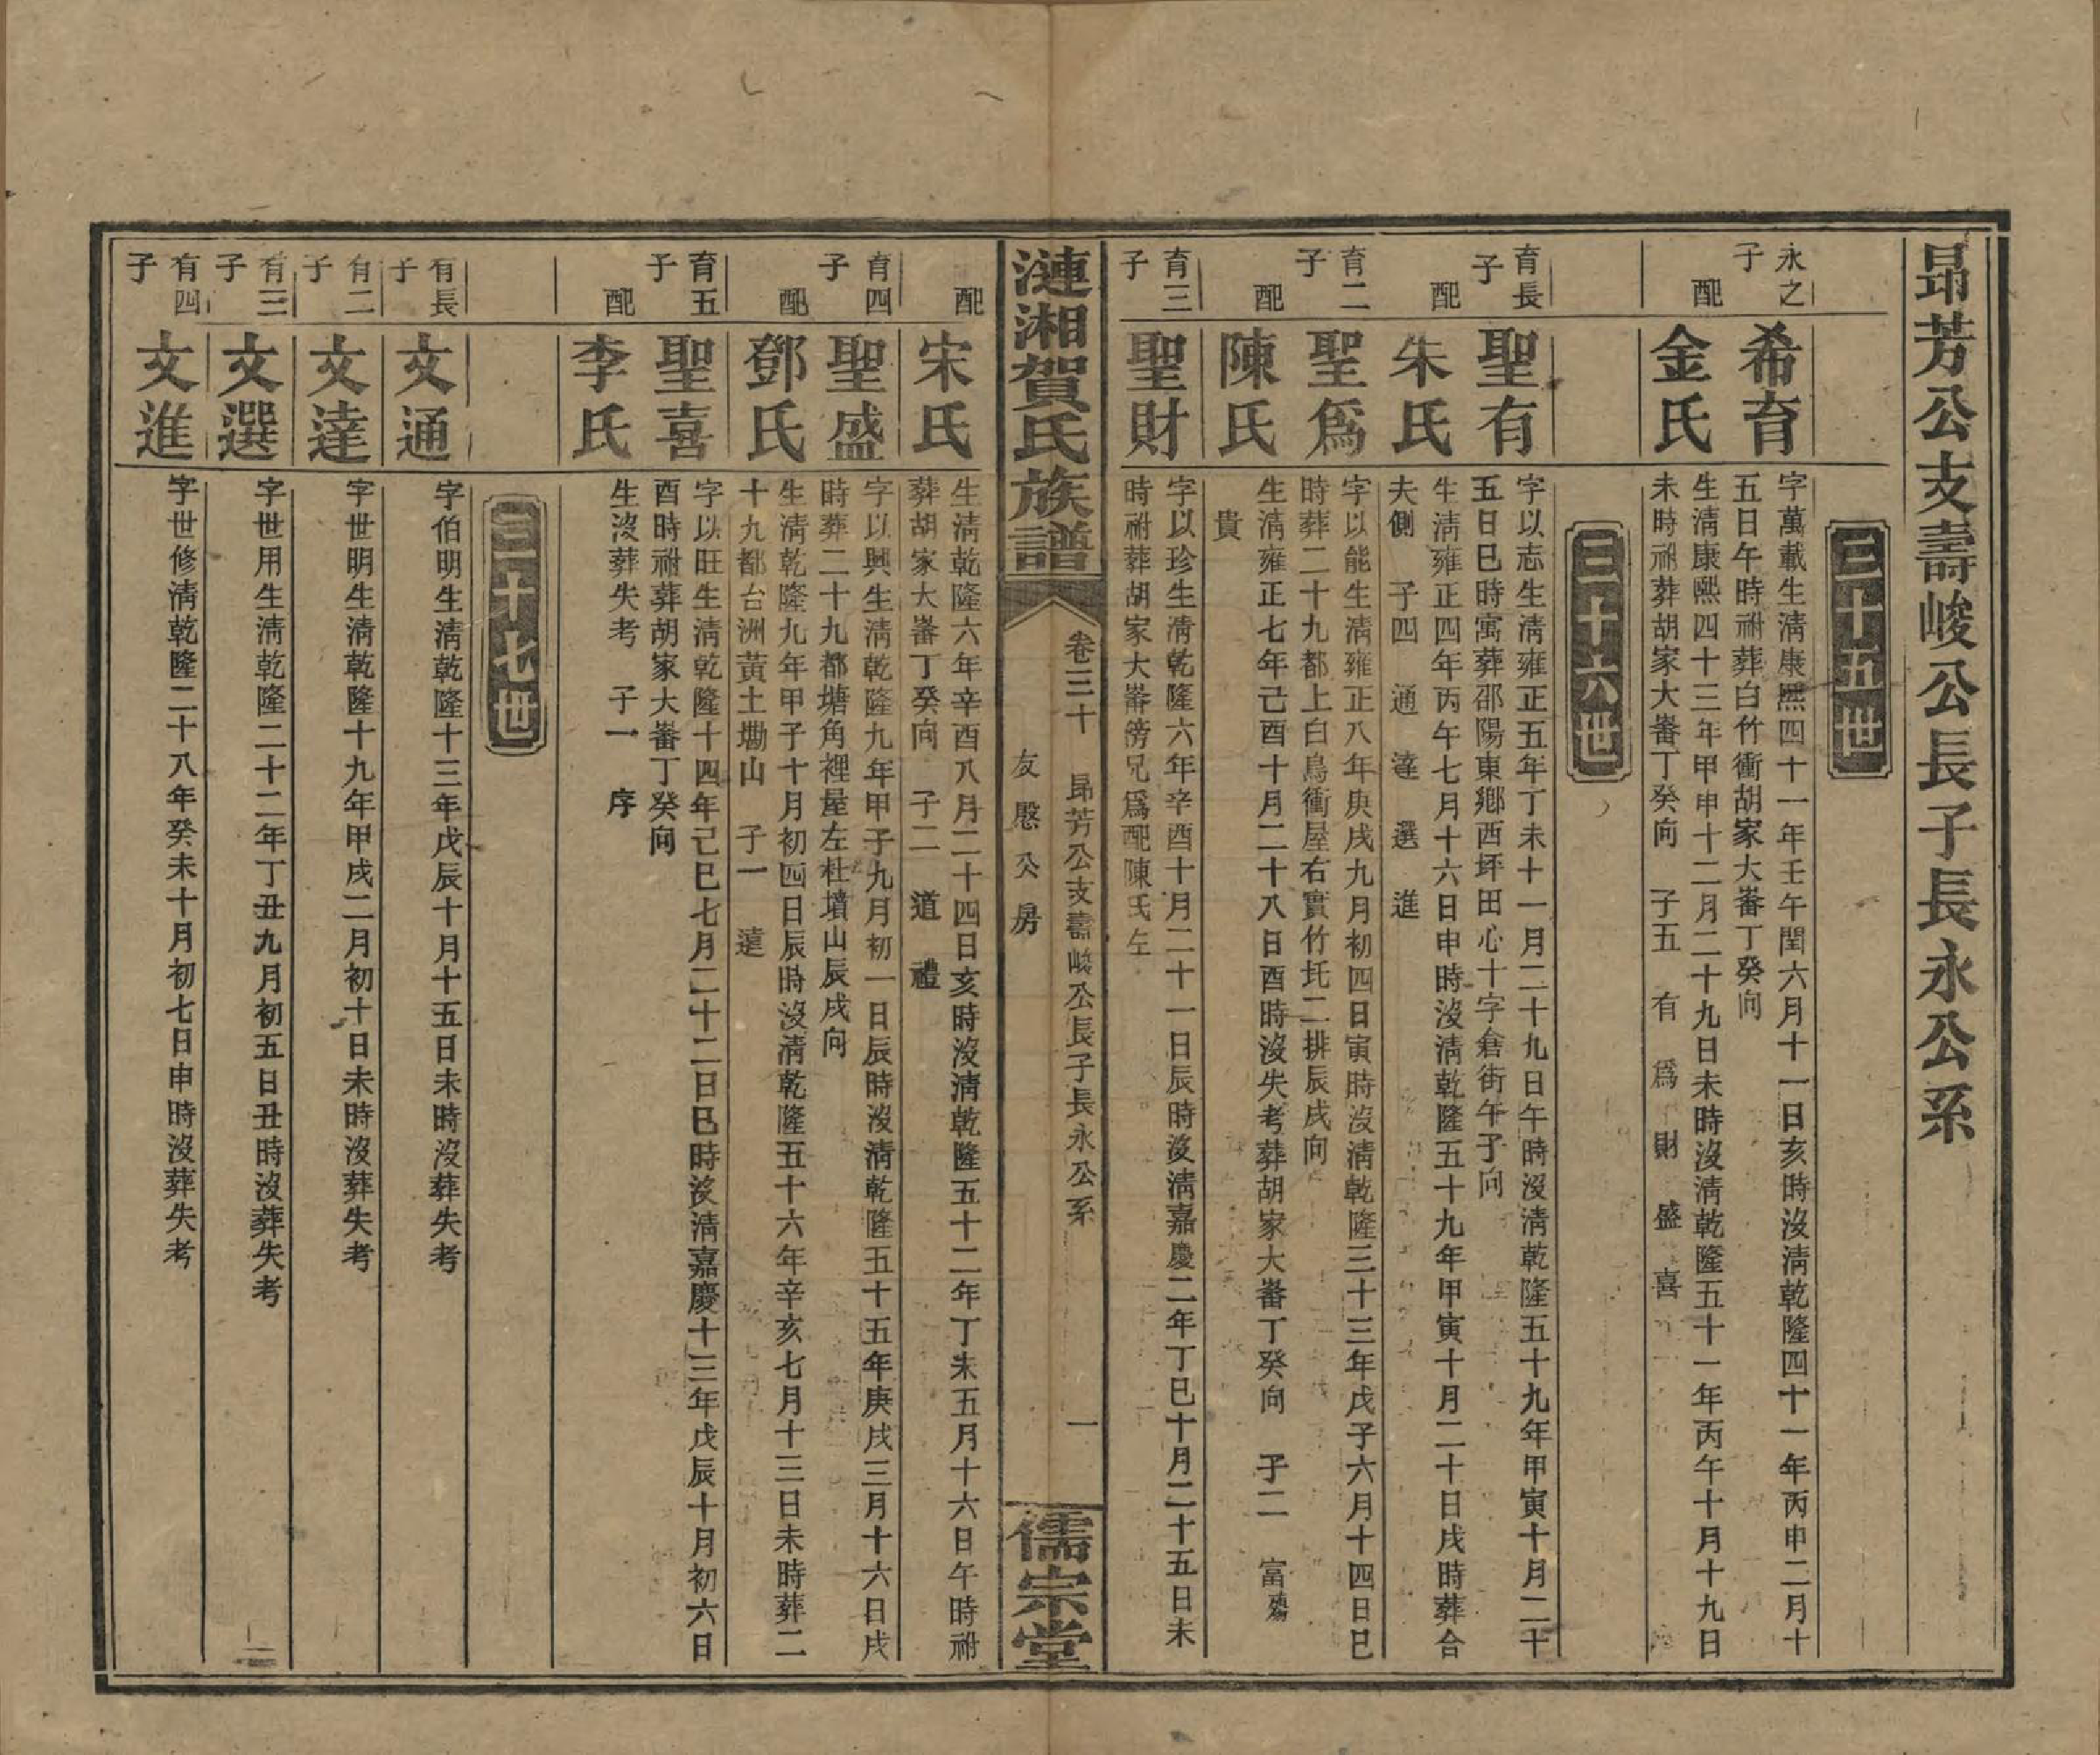 昻芳公支壽峻公長子長永公系
三十五世
永之子
希育
字萬載生淸康熙四十一年壬午閏六月十一日亥時沒淸乾隆四十一年丙申二月十
五日午時祔葬白竹衝胡家大𡹴丁癸向
配
金氏
生淸康熙四十三年甲申十二月二十九日未時沒淸乾隆五十一年丙午十月十九日
未時祔葬胡家大𡹴丁癸向 子五 有 爲 財 盛 喜
三十六世
育長子
聖有
字以志生淸雍正五年丁未十一月二十九日午時沒淸乾隆五十九年甲寅十月二十
五日巳時寓葬邵陽東鄉西坪田心十字倉街午子向
配
朱氏
生淸雍正四年丙午七月十六日申時沒淸乾隆五十九年甲寅十月二十日戌時葬合
夫側 子四 通 達 選 進
育二子
聖爲
字以能生淸雍正八年庚戌九月初四日寅時沒淸乾隆三十三年戊子六月十四日巳
時葬二十九都上白鳥衝屋右實竹圫二排辰戌向
配
陳氏
生淸雍正七年己酉十月二十八日酉時沒失考葬胡家大𡹴丁癸向 子二 富殤
貴
育三子
聖財
字以珍生淸乾隆六年辛酉十月二十一日辰時沒淸嘉慶二年丁巳十月二十五日未
時祔葬胡家大𡹴傍兄爲配陳氏左
漣湘賀氏族譜
卷三十 昻芳公支壽峻公長子長永公系 一
友愍公房
儒宗堂
配
宋氏
生淸乾隆六年辛酉八月二十四日亥時沒淸乾隆五十二年丁未五月十六日午時祔
葬胡家大𡹴丁癸向 子二 道 禮
育四子
聖盛
字以興生淸乾隆九年甲子九月初一日辰時沒淸乾隆五十五年庚戌三月十六日戌
時葬二十九都塘角裡屋左杜墳山辰戌向
配
鄧氏
生淸乾隆九年甲子十月初四日辰時沒淸乾隆五十六年辛亥七月十三日未時葬二
十九都台洲黃土墈山 子一 遠
育五子
聖喜
字以旺生淸乾隆十四年己巳七月二十二日巳時沒淸嘉慶十三年戊辰十月初六日
酉時祔葬胡家大𡹴丁癸向
配
李氏
生沒葬失考 子一 序
三十七世
有長子
文通
字伯明生淸乾隆十三年戊辰十月十五日未時沒葬失考
有二子
文達
字世明生淸乾隆十九年甲戌二月初十日未時沒葬失考
有三子
文選
字世用生淸乾隆二十二年丁丑九月初五日丑時沒葬失考
有四子
文進
字世修淸乾隆二十八年癸未十月初七日申時沒葬失考